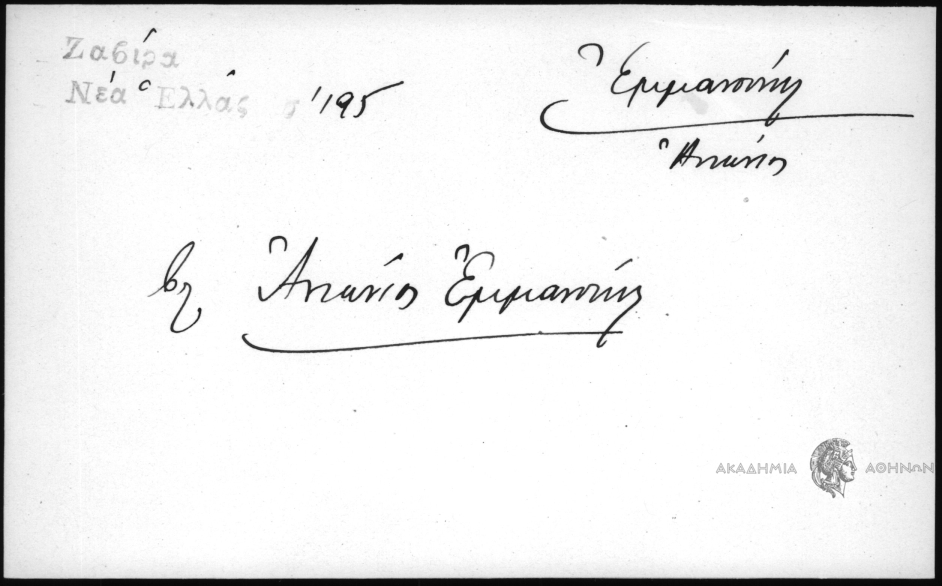 Ζαβίρα
Νέα Ἑλλάς σ 195
Ἐμμανουήλ
Ἀντώνιος
βλ Ἀντώνιος Ἐμμανουήλ
ΑΚΑΔΗΜΙΑ ΑΘΗΝΩΝ